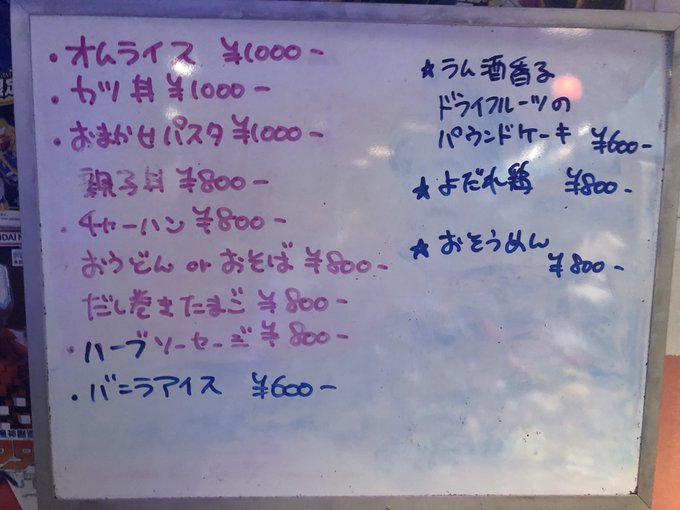 ・オムライス ¥1000-
・カツ丼 ¥1000-
・おまかせパスタ ¥1000-
親子丼 ¥800-
・チャーハン ¥800-
おうどん or おそば ¥800-
だし巻きたまご ¥800-
・ハーブソーセージ ¥800-
・バニラアイス ¥600-
★ラム酒香る
ドライフルーツの
パウンドケーキ ¥600-
★よだれ鶏 ¥800-
★おそうめん
¥800-